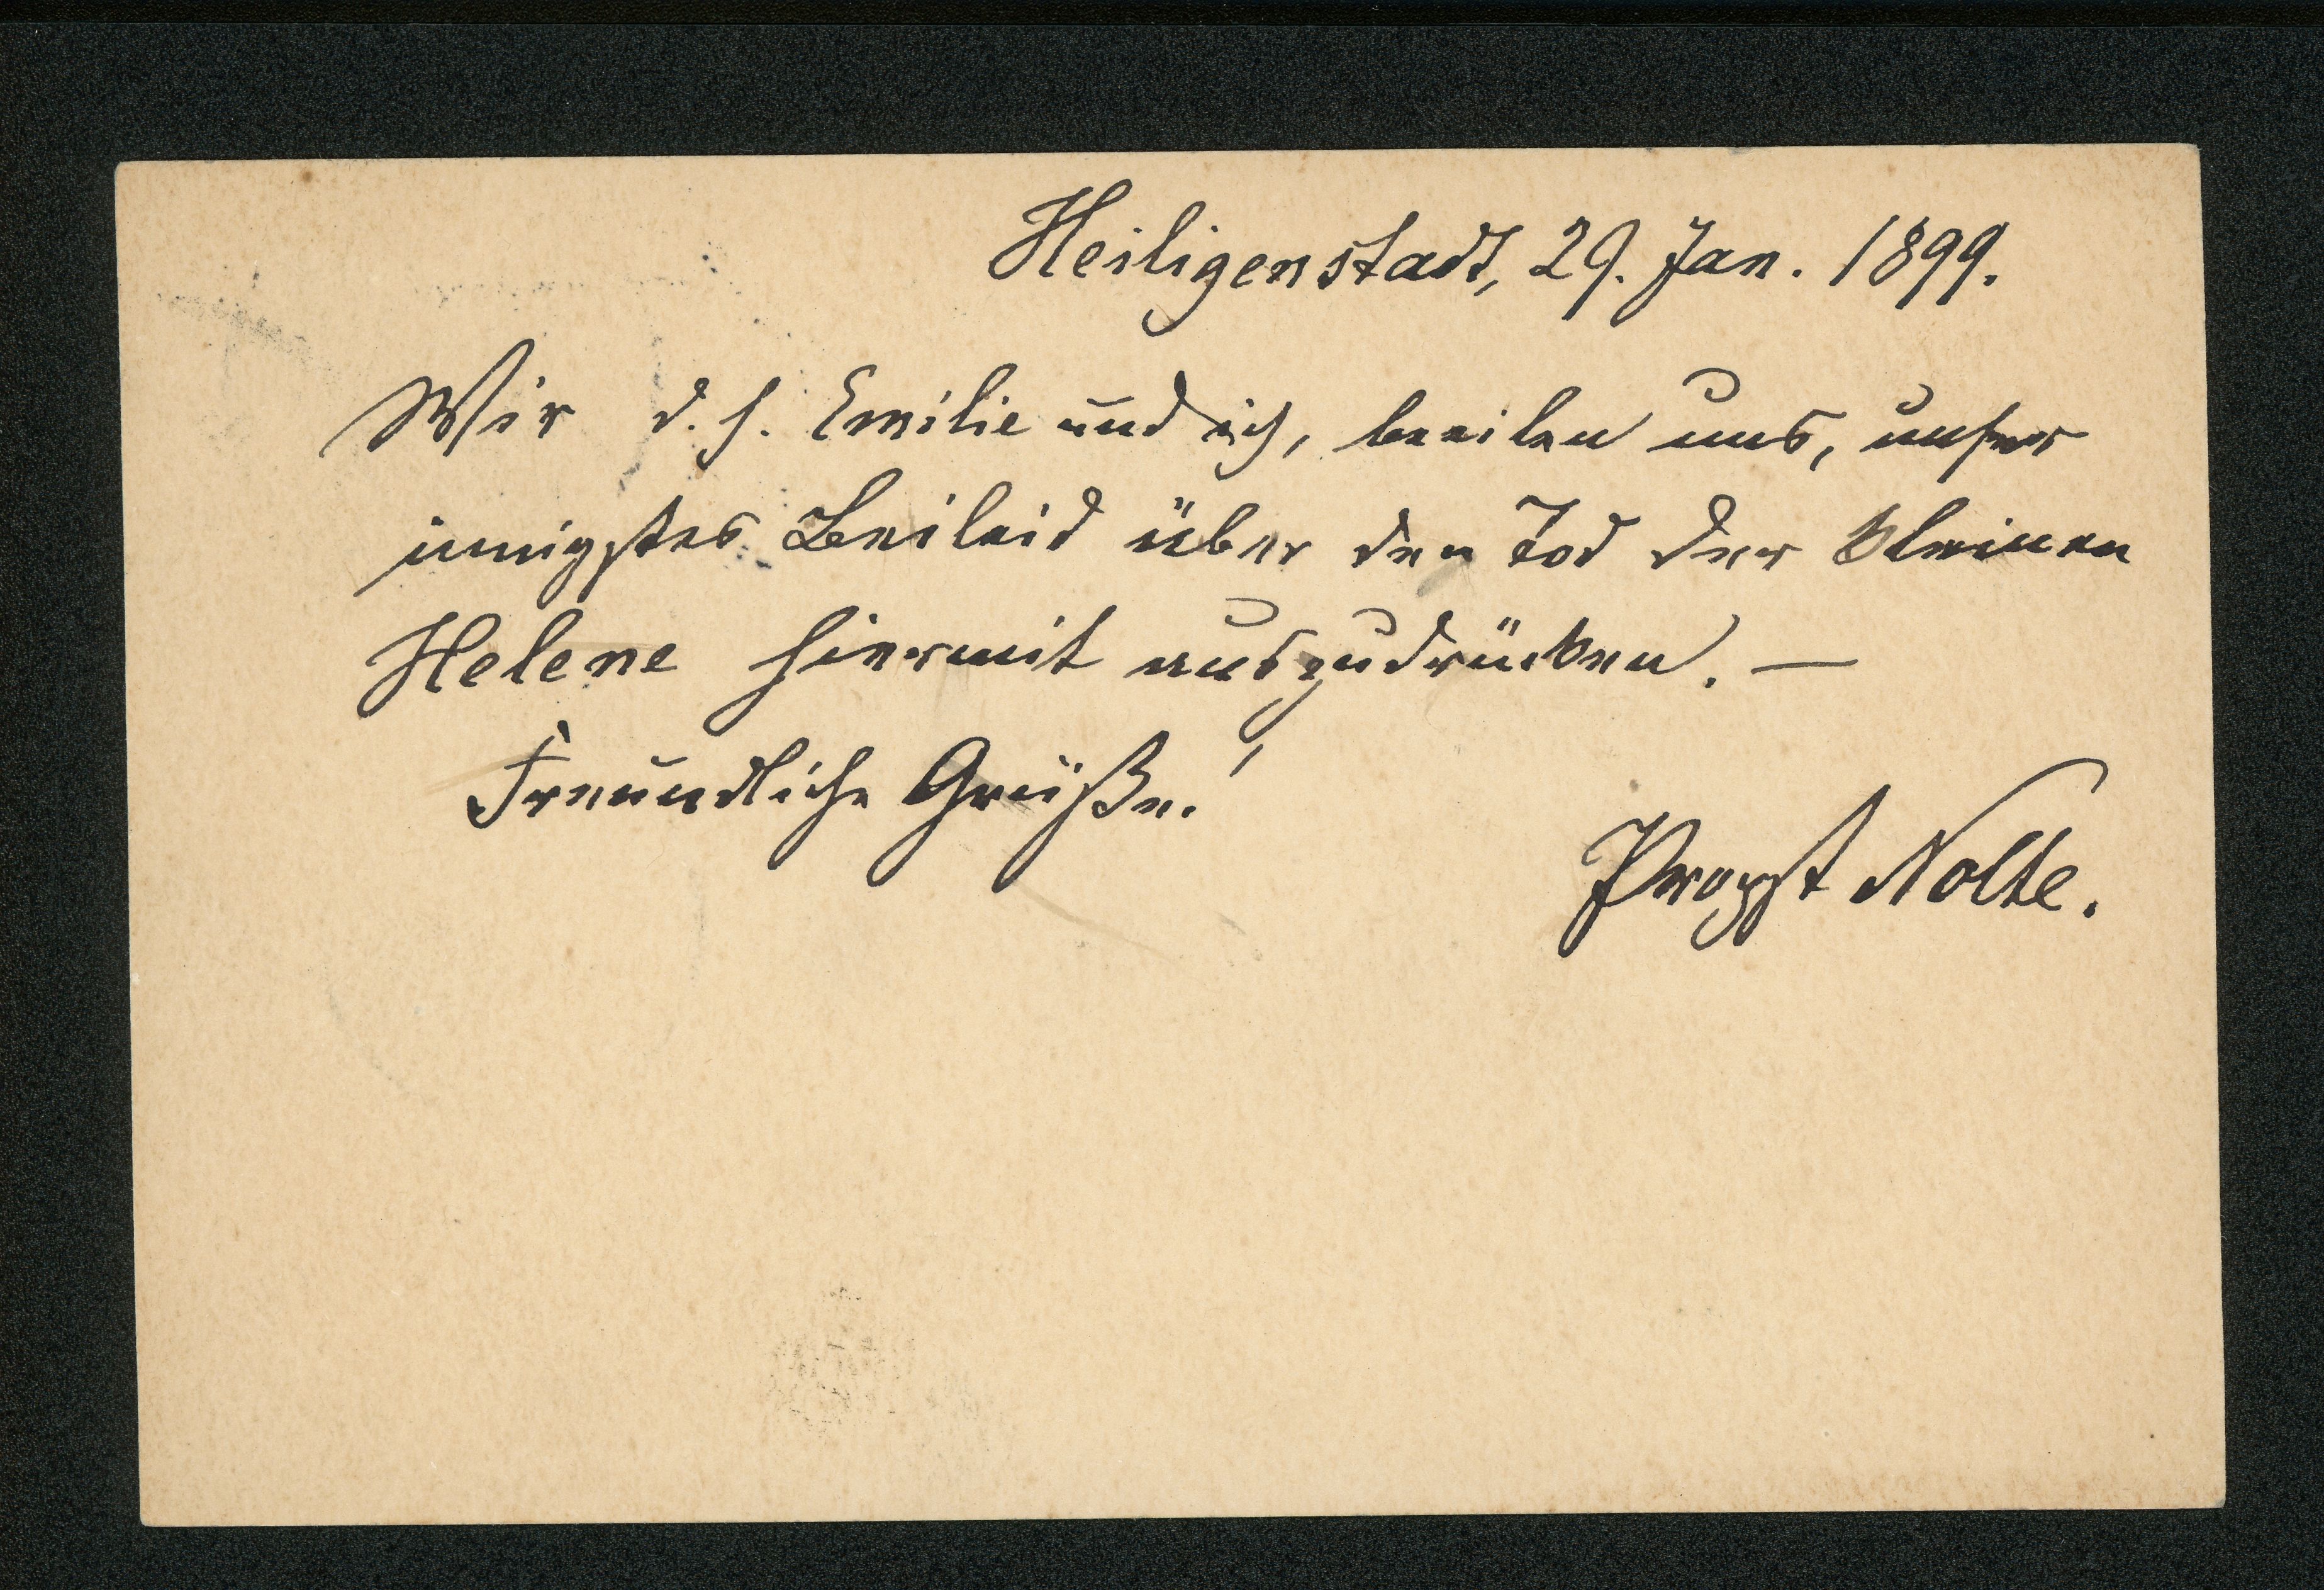 Heiligenstadt, 29. Jan. 1899.
Wir d. h. Emilie und ich, beeilen uns, unser
innigstes Beileid über den Tod der kleinen
Helene hiermit auszudrücken. —
Freundliche Grüße!
Propst Nolte.